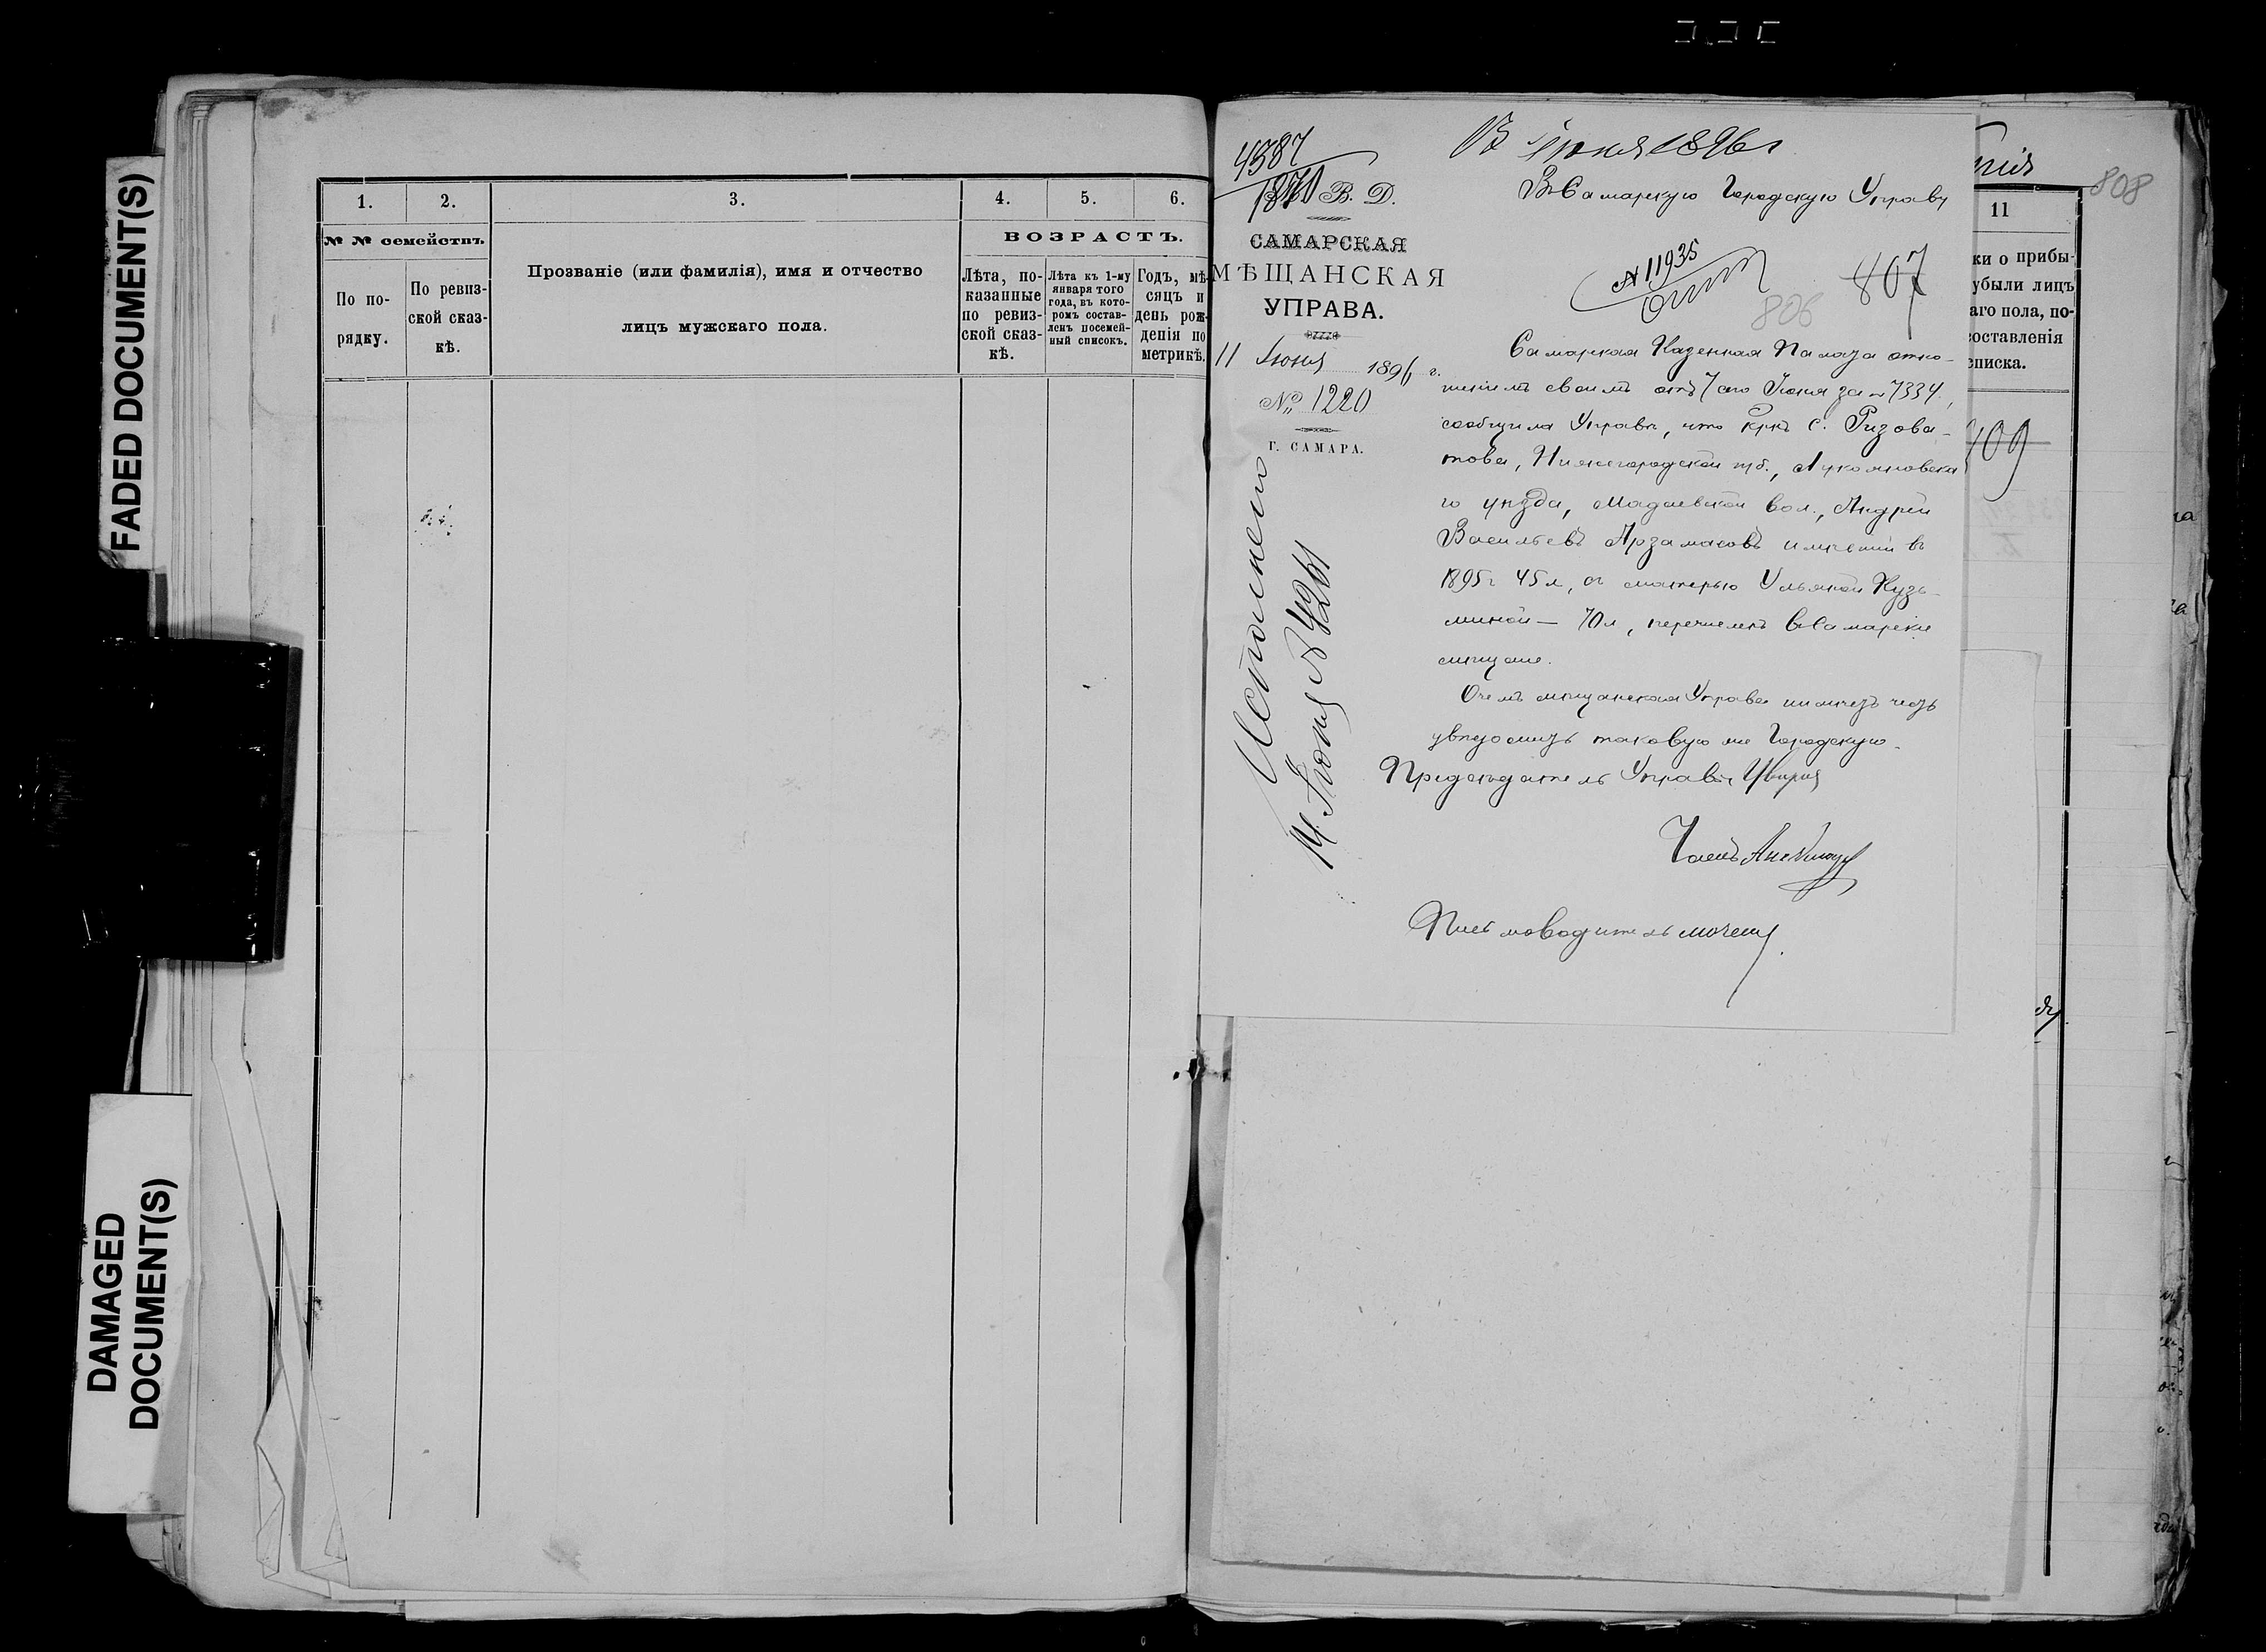 FADED DOCUMENT(S)
DAMAGED
DOCUMENT(S)
1.
2.
3.
4.
5.
6.
№ № семействъ.
ВОЗРАСТЪ.
По по-
рядку.
По ревиз-
ской сказ-
кѣ.
Прозваніе (или фамилія), имя и отчество
лицъ мужскаго пола.
Лѣта, по-
казанные
по ревиз-
ской сказ-
кѣ.
Лѣта къ 1-му
января того
года, въ кото-
ромъ состав-
ленъ посемей-
ный списокъ.
Годъ, мѣ-
сяцъ и
день рож-
денія по
метрикѣ.
4387
1870 В. Д.
САМАРСКАЯ
МѢЩАНСКАЯ
УПРАВА.
11 Іюня 1896 г.
№ 1220
Г. САМАРА.
Исполнено
14 Іюня № 4261
13 Іюня 1896 г
Въ Самарскую Городскую Управу
№ 11935
807
806
Самарская Казенная Палата отно-
шеніемъ своимъ отъ 7 сего Іюня за № 7334,
сообщила Управѣ, что крнъ с. Ризова-
това, Нижегородской губ., Лукояновска
го уѣзда, Мадаевской вол., Андрей
Васильевъ Арзамасовъ имѣвшій въ
1895 г 45 л, съ матерью Ульяной Кузь-
миной — 70 л, перечисленъ въ Самарскіе
мѣщане.
О чемъ мѣщанская Управа имѣетъ честь
увѣдомить таковую же Городскую.
Предсѣдатель Управы
Членъ
Письмоводитель
808
11
ки о прибы-
убыли лицъ
аго пола, по-
составленія
списка.